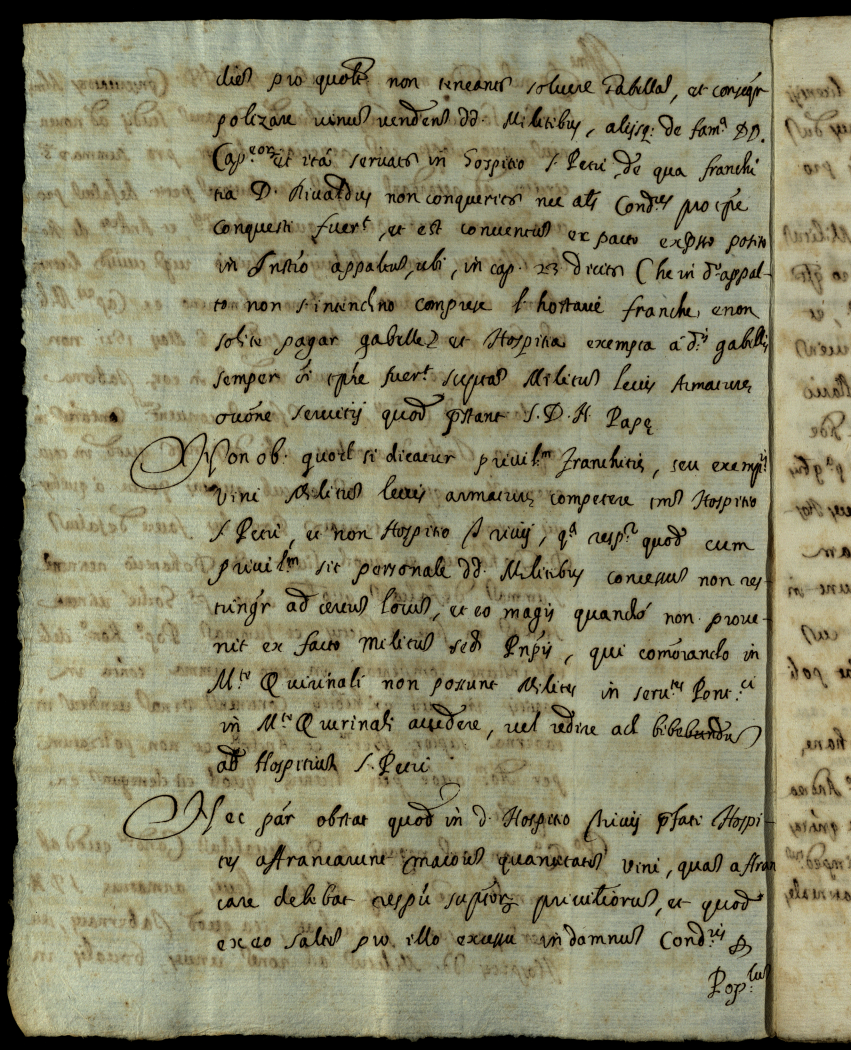 dies pro quolt non teneants solvere Gabellas, et conseqr
polizare vinus vendens dd. Militibus, alijsq; de fama DD.
Cap.eor et ità servats in Hospitio S. Petri, de qua franchi
tia D. Rivaldus non conquerits nec alij Cond.res pro tpre
conquesti fuert, et est conventus ex pacto expsso posito
in Instro appaltus, ubi, in cap. 23 dicits Che in do appal-
to non s'intendino comprese l'hostarie franche, e non
solite pagar gabelle, et Hospitia exempta à ds gabellis
semper oi tpre fuert supras Militus levis Armature,
one servitij quod pstant S. D. N. Pape
Non ob. quod si dicatur privil.m franchitie, seu exempt.
Vini Militus levis armature competere tms Hospitio
S. Petri, et non Hospitio Trivij, qa respr quod cum
privil.m sit personale dd. Militibus concessus non res-
tringr ad certus locus, et eo magis quando non prove-
nit ex facto Militus sed Pnpis, qui comorando in
M.te Quirinali non possunt Milites in serv.tes Pont.ci
in M.te Quirinali accedere, vel redire ad bibendus
ad Hospitius S. Petri
Nec par obstat quod in d. Hospitio Trivij pfati Hospi-
tes affrancarunt maiores quantitates vini, quas affran
care debebat respu suptor privilegiorus, et quod
ex eo saltes pro illo excessu in damnus Cond.ris P
Pop.lus